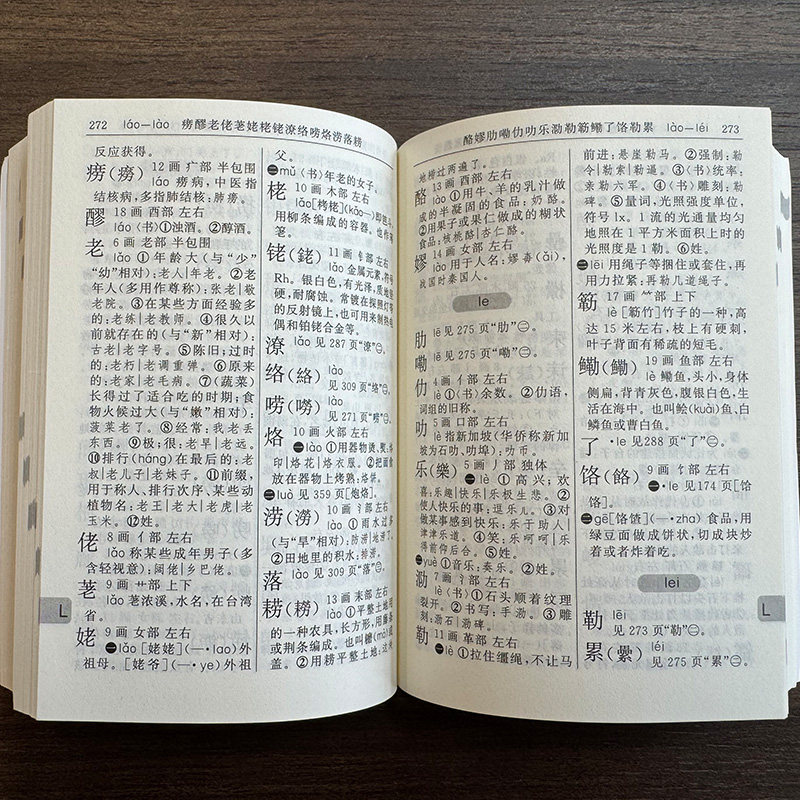 272 láo—lào 痨醪老佬荖姥栳铑潦络唠烙涝落耢
反应获得。
痨(癆) 12 画 疒部 半包围
láo 痨病,中医指
结核病,多指肺结核:肺痨。
醪 18 画 酉部 左右
láo〈书〉①浊酒。②醇酒。
老 6 画 老部 半包围
lǎo ①年龄大(与“少”
“幼”相对):老人|年老。②老
年人(多用作尊称):张老|敬
老院。③在某些方面经验多
的:老练|老教师。④很久以
前就存在的(与“新”相对):
古老|老字号。⑤陈旧;过时
的:老朽|老调重弹。⑥原来
的:老家|老毛病。⑦(蔬菜)
长得过了适合吃的时期;食
物火候过大(与“嫩”相对):
菠菜老了。⑧经常:我老丢
东西。⑨极;很:老早|老远。
⑩排行(háng)在最后的:老
叔|老儿子|老妹子。⑪前缀,
用于称人、排行次序、某些动
植物名:老王|老大|老虎|老
玉米。⑫姓。
佬 8 画 亻部 左右
lǎo 称某些成年男子(多
含轻视意):阔佬|乡巴佬。
荖 9 画 艹部 上下
lǎo 荖浓溪,水名,在台湾
省。
姥 9 画 女部 左右
㊀lǎo [姥姥](—·lao)外
祖母。[姥爷](—·ye)外祖
父。
㊁mǔ〈书〉年老的女子。
栳 10 画 木部 左右
lǎo[栲栳](kǎo—)即笆斗
用柳条编成的容器。也作
筹。
铑(銠) 11 画 钅部 左右
lǎo 金属元素,符号
Rh。银白色,有光泽,质地
硬,耐腐蚀。常镀在探照灯等
的反射镜上,也可用来制热电
偶和铂铑合金等。
潦 lǎo
见 287 页“潦”㊀。
络(絡) lào
见 309 页“络”㊀。
唠(嘮) lào
见 271 页“唠”㊀。
烙 10 画 火部 左右
㊀lào ①用器物烫、熨:烙
印|烙花|烙衣服。②把面食
放在器物上烤熟:烙饼。
㊁luò 见 359 页[炮烙]。
涝(澇) 10 画 氵部 左右
lào ①雨水过多
(与“旱”相对):防涝|地涝了。
②田地里的积水:排涝。
落 lào
见 309 页“落”㊀。
耢(耮) 13 画 耒部 左右
lào ①平整土地
的一种农具,长方形,用藤条
或荆条编成。也叫耱(mò)或
盖。②用耢平整土地:这块
L
酪嫪肋嘞仂叻乐泐勒簕鳓了饹勒累 lào—léi 273
地耢过两遍了。
酪 13 画 酉部 左右
lào ①用牛、羊的乳汁做
成的半凝固的食品:奶酪。
②用果子或果仁做成的糊状
食品:核桃酪|杏仁酪。
嫪 14 画 女部 左右
lào 用于人名:嫪毐(ǎi),
战国时秦国人。
le
肋 lē
见 275 页“肋”㊁。
嘞 lē
见 275 页“嘞”㊁。
仂 4 画 亻部 左右
lè ①〈书〉余数。②仂语,
词组的旧称。
叻 5 画 口部 左右
lè 指新加坡(华侨称新加
坡为石叻、叻埠):叻币。
乐(樂) 5 画 丿部 独体
㊀lè ①高兴;欢
喜:乐趣|快乐|乐极生悲。②
使人快乐的事:逗乐儿。③对
做某事感到快乐:乐于助人|
津津乐道。④笑:乐呵呵|乐
得前仰后合。⑤姓。
㊁yuè ①音乐:奏乐。②姓。
泐 7 画 氵部 左右
lè〈书〉①石头顺着纹理
裂开。②书写:手泐。③雕
刻:泐石|泐碑。
勒 11 画 革部 左右
㊀lè ①拉住缰绳,不让马
前进:悬崖勒马。②强制:勒
令|勒索|勒逼。③〈书〉统率:
亲勒六军。④〈书〉雕刻:勒
碑。⑤量词,光照强度单位,
符号 lx。1 流的光通量均匀
地照在 1 平方米面积上时的
光照度是 1 勒。⑥姓。
㊁lēi 用绳子等捆住或套住,再
用力拉紧:再勒几道绳子。
簕 17 画 ⺮部 上下
lè [簕竹]竹子的一种,高
达 15 米左右,枝上有硬刺,
叶子背面有稀疏的短毛。
鳓(鰳) 19 画 鱼部 左右
lè 鳓鱼,头小,身体
侧扁,背青灰色,腹银白色,生
活在海中。也叫鲙(kuài)鱼、白
鳞鱼或曹白鱼。
了 ·le 见288 页“了”㊀。
饹(餎) 9 画 饣部 左右
㊀·le 见174 页[饸
饹]。
㊁gē[饹馇](—·zha)食品,用
绿豆面做成饼状,切成块炒
着或者炸着吃。
lei
勒 lēi
见 273 页“勒”㊁。
累(纍) léi
见 275 页“累”㊁。
L